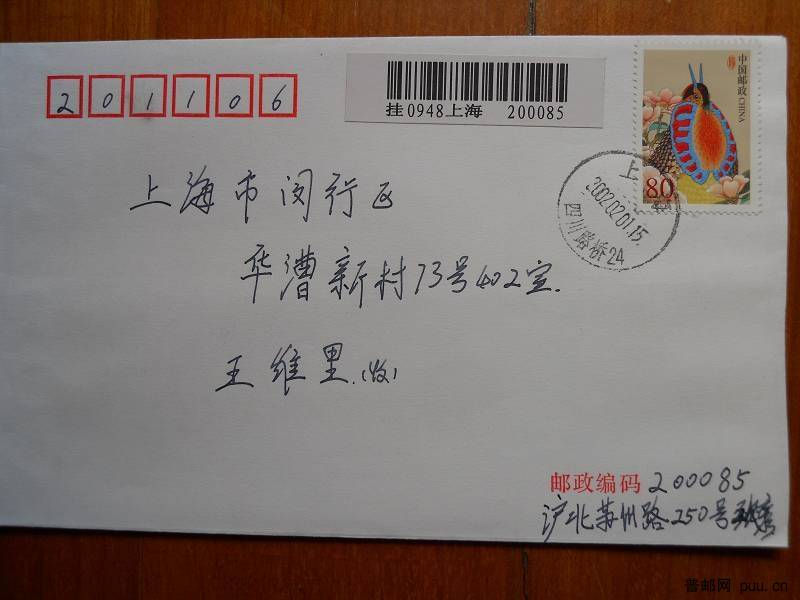 201106
挂0948上海 200085
中国邮政 CHINA
80
上海
2002.02.01.15.
四川路桥24
上海市闵行区
华漕新村73号402室.
王维里.(收)
邮政编码 200085
沪北苏州路250号
普邮网 puu.cn